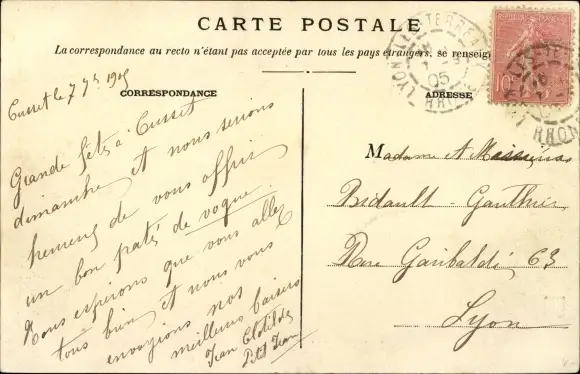 CARTE POSTALE
La correspondance au recto n'étant pas acceptée par tous les pays étrangers, se renseig
CORRESPONDANCE
ADRESSE
REPUBLIQUE FRANÇAISE
10
LYON
05
RHONE
Cusset le 7 7bre 1905
Grande fête à Cusset
dimanche et nous serions
hereux de vous offrir
un bon pâté de vogue
Nous espérons que vous allez
tous bien et nous vous
envoyions nos
meilleurs baisers
Jean Clotilde
Petit Jean
Madame et
Bidault - Gauthier
Rue Garibaldi, 63
Lyon